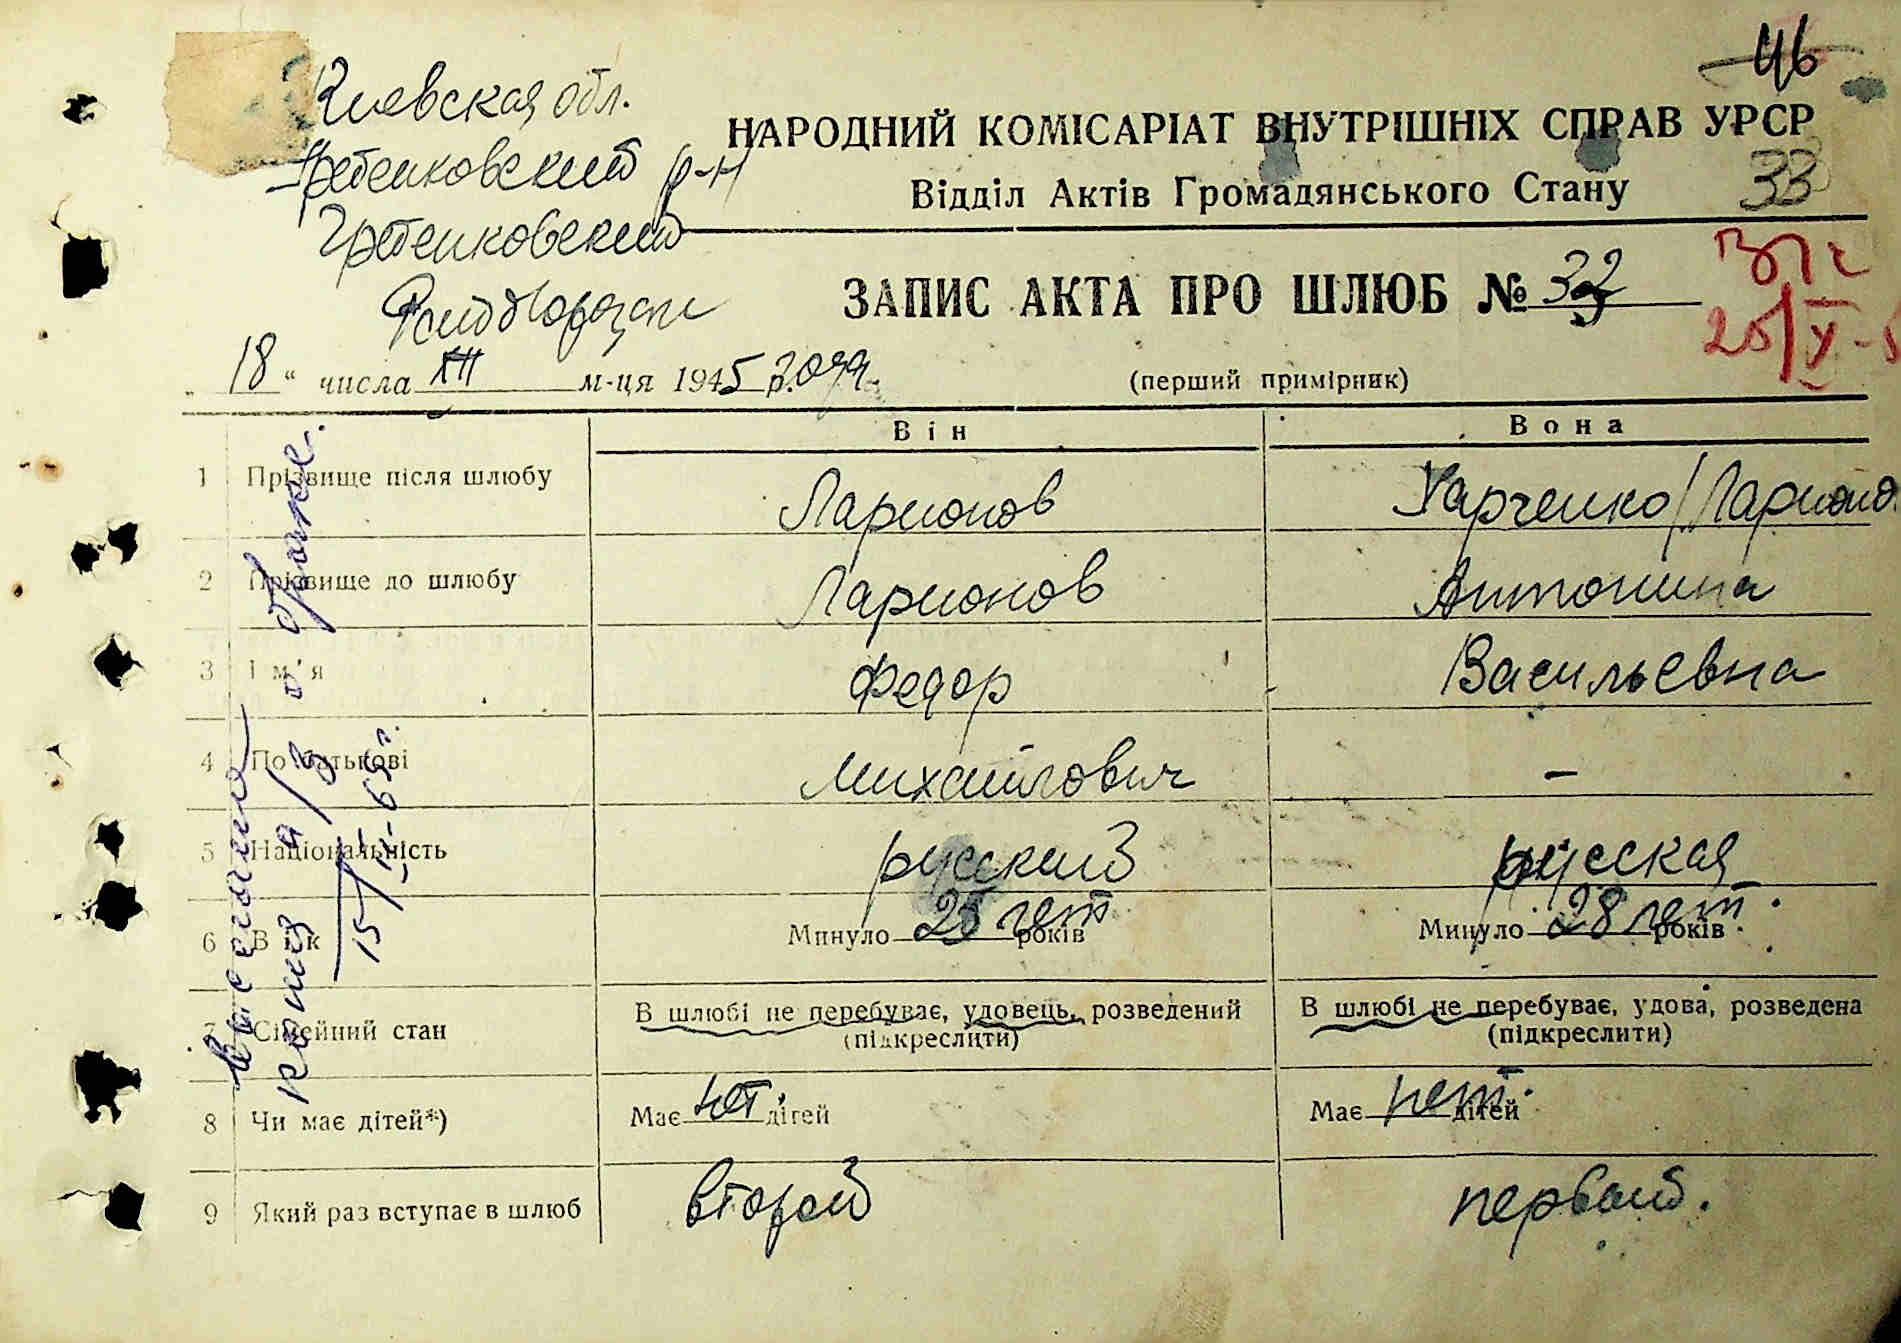 46
Киевская обл.
Гребенковский р-н
Гребенковский
НАРОДНИЙ КОМІСАРІАТ ВНУТРІШНІХ СПРАВ УРСР
Відділ Актів Громадянського Стану
33
ЗАПИС АКТА ПРО ШЛЮБ № 32
25/V-
„ 18 “ числа XII м-ця 1945 р.
(перший примірник)
Він Вона
1 Прізвище після шлюбу Ларионов Харченко/Ларионо
2 Прізвище до шлюбу Ларионов Антонина
3 Ім'я Федор Васильевна
4 По батькові Михайлович –
5 Національність русский русская
6 Вік Минуло 25 лет років Минуло 28 лет років
7 Сімейний стан В шлюбі не перебуває, удовець, розведений (підкреслити) В шлюбі не перебуває, удова, розведена (підкреслити)
8 Чи має дітей*) Має нет дітей Має нет дітей
9 Який раз вступає в шлюб второй первый.
Выслана
копия а/з о браке.
15/IV-65г.